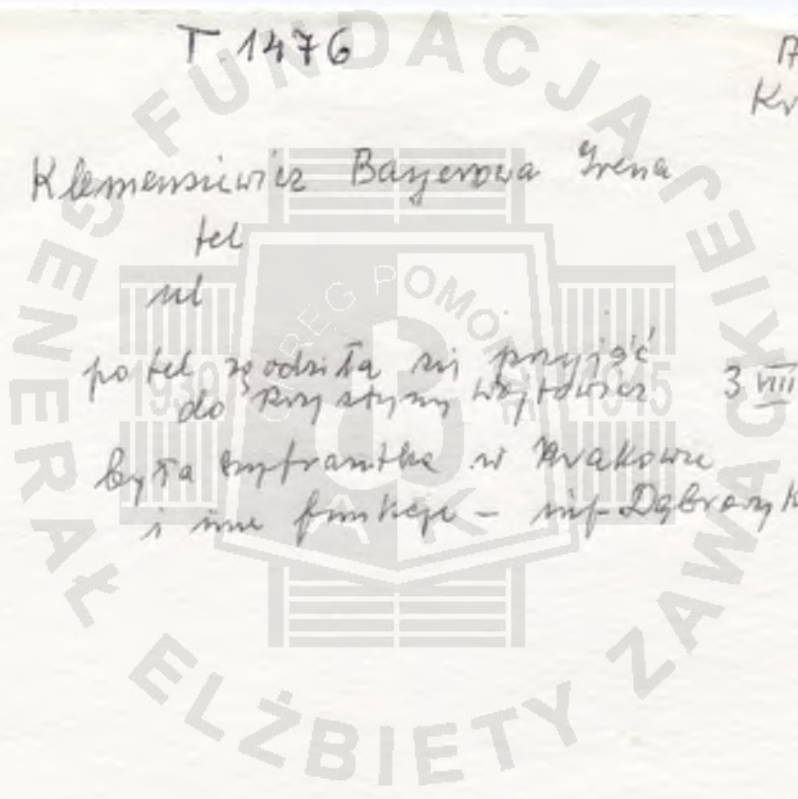 T. 1476
Kr
Klemensiewicz Bayerowa Irena
tel
ul
po tel zgodziła się przyjść
do Krystyny Wojtowicz 3 VIII
była szyfrantka w Krakowie
i inne funkcje – inf. Dąbrowy K
FUNDACJA GENERAŁ ELŻBIETY ZAWACKIEJ
OKRĘG POMORZE
1939 1945
AK